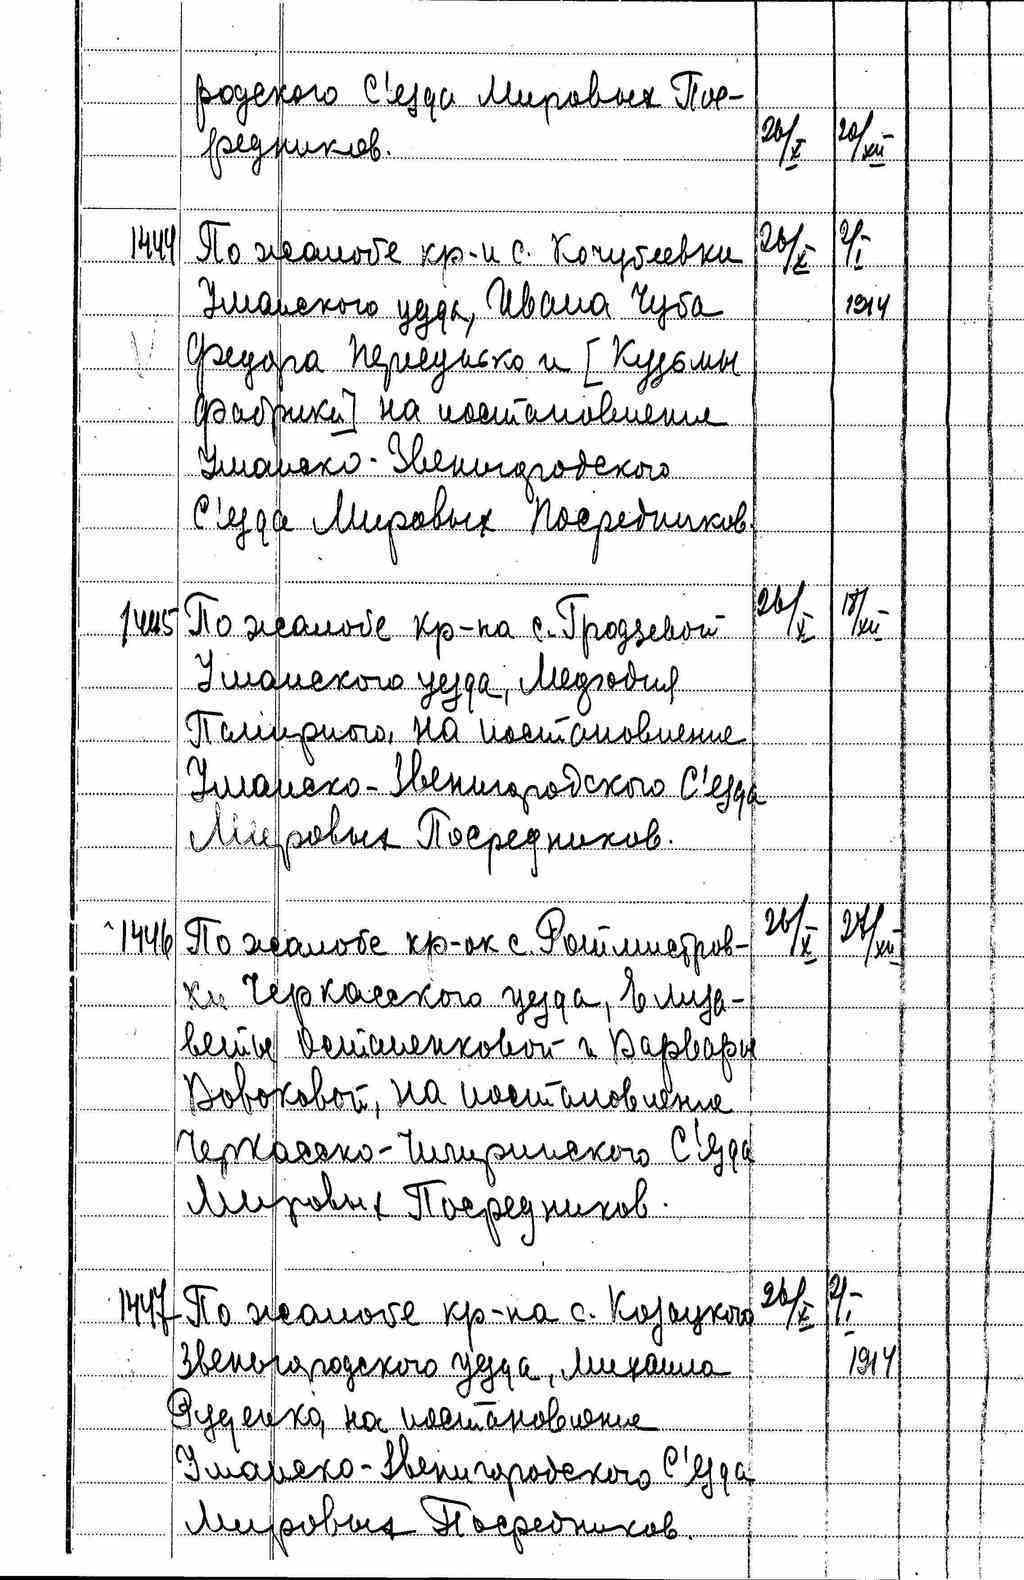 родского С'езда Мировых Пос-
редников. 26/X 20/XII
1444 По жалобе кр-н с. Кочубеевки 26/X 2/I
Уманского уезда, Ивана Чуба 1914
Федора Передисько и [Кузьмы
Фабрики] на постановление
Уманско-Звенигородского
С'езда Мировых Посредников.
1445 По жалобе кр-на с. Гродзевой 26/X 18/XII
Уманского уезда, Мефодия
на постановление
Уманско-Звенигородского С'езда
Мировых Посредников.
1446 По жалобе кр-ок с. Ротмистров- 26/X 27/XII
ки Черкасского уезда, Елиза-
веты Остапенковой и Варвары
Вовковой, на постановление
Черкасско-Чигиринского С'езда
Мировых Посредников.
1447 По жалобе кр-на с. Козацкого 26/X 2/I
Звенигородского уезда, Михаила 1914
Руденко, на постановление
Уманско-Звенигородского С'езда
Мировых Посредников.